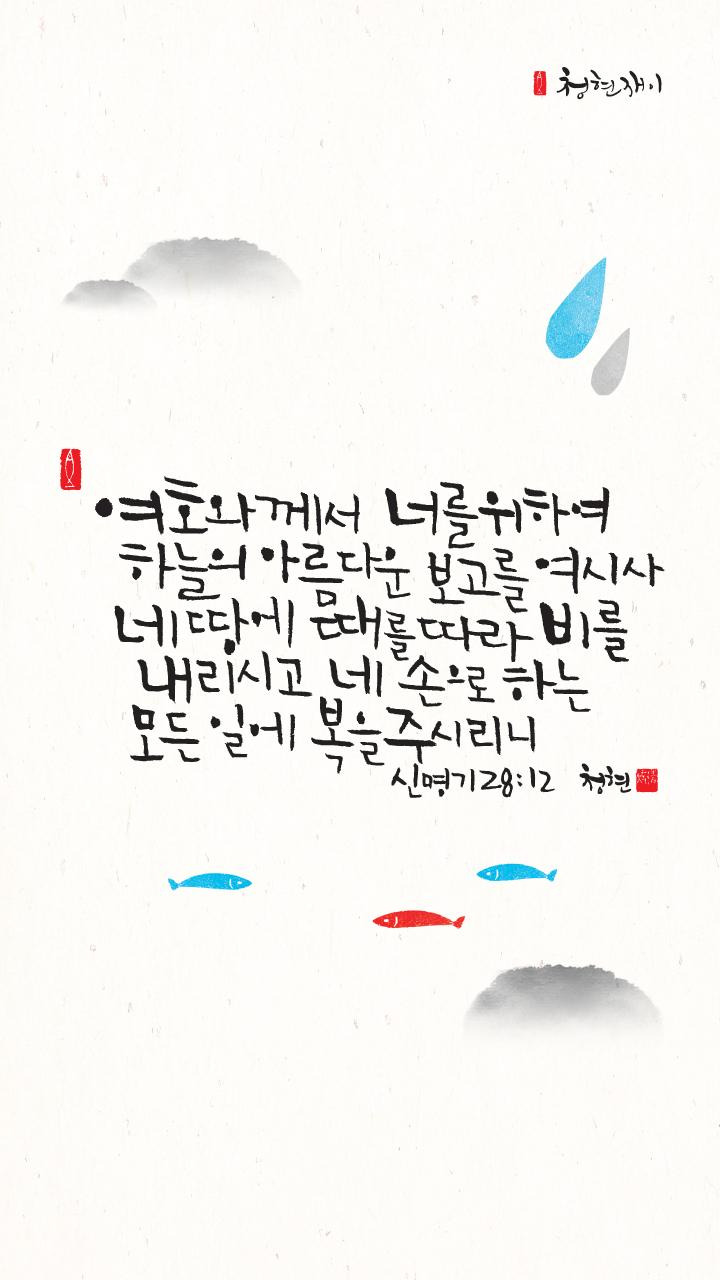 청현재이
여호와께서 너를위하여
하늘의 아름다운 보고를 여시사
네 땅에 때를 따라 비를
내리시고 네 손으로 하는
모든 일에 복을 주시리니
신명기28:12 청현